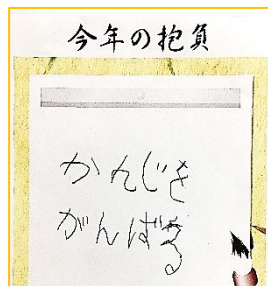 今年の抱負
かんじを
がんばる